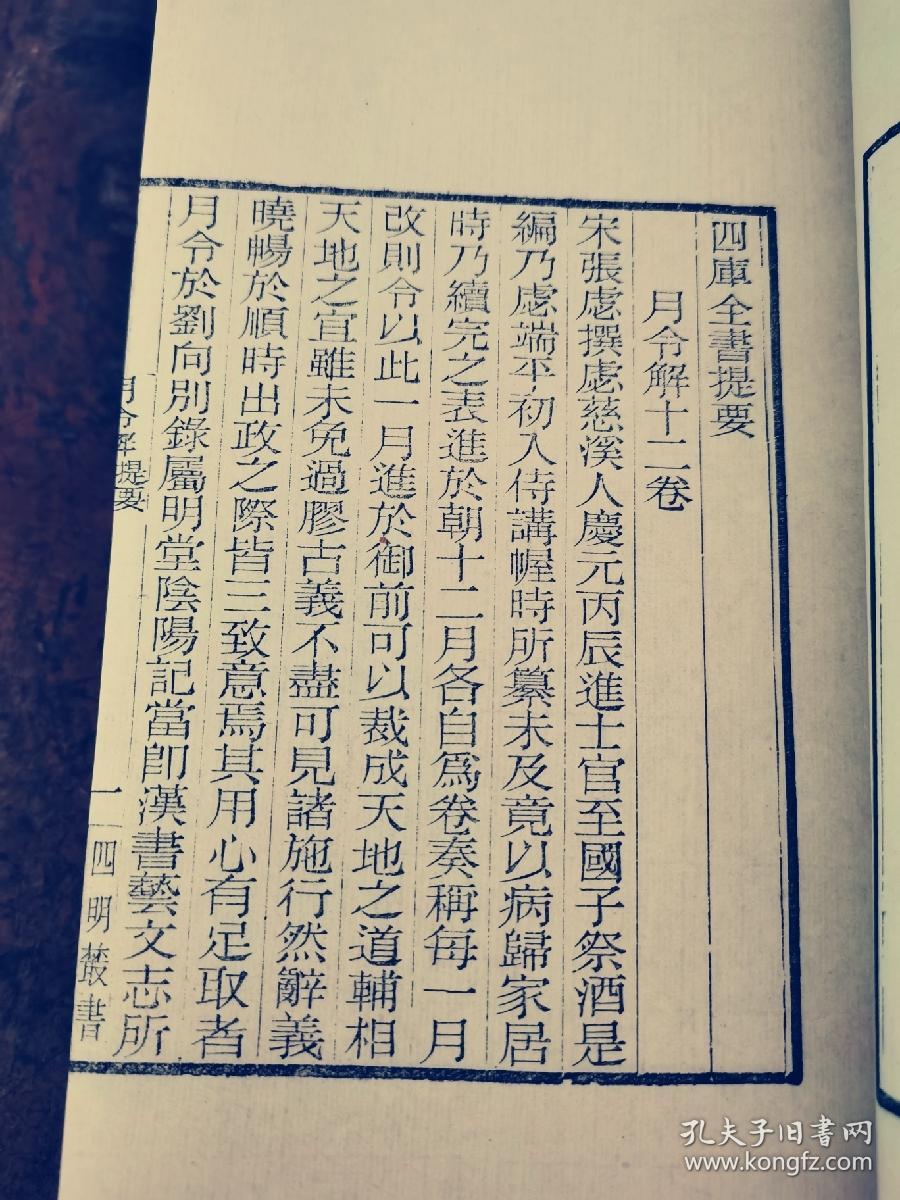 四庫全書提要
月令解十二卷
宋張虙撰虙慈溪人慶元丙辰進士官至國子祭酒是
編乃虙端平初入侍講幄時所纂未及竟以病歸家居
時乃續完之表進於朝十二月各自爲卷奏稱每一月
改則令以此一月進於御前可以裁成天地之道輔相
天地之宜雖未免過膠古義不盡可見諸施行然辭義
曉暢於順時出政之際皆三致意焉其用心有足取者
月令於劉向別錄屬明堂陰陽記當卽漢書藝文志所
月令解提要
一
四明叢書
孔夫子旧书网
www.kongfz.com